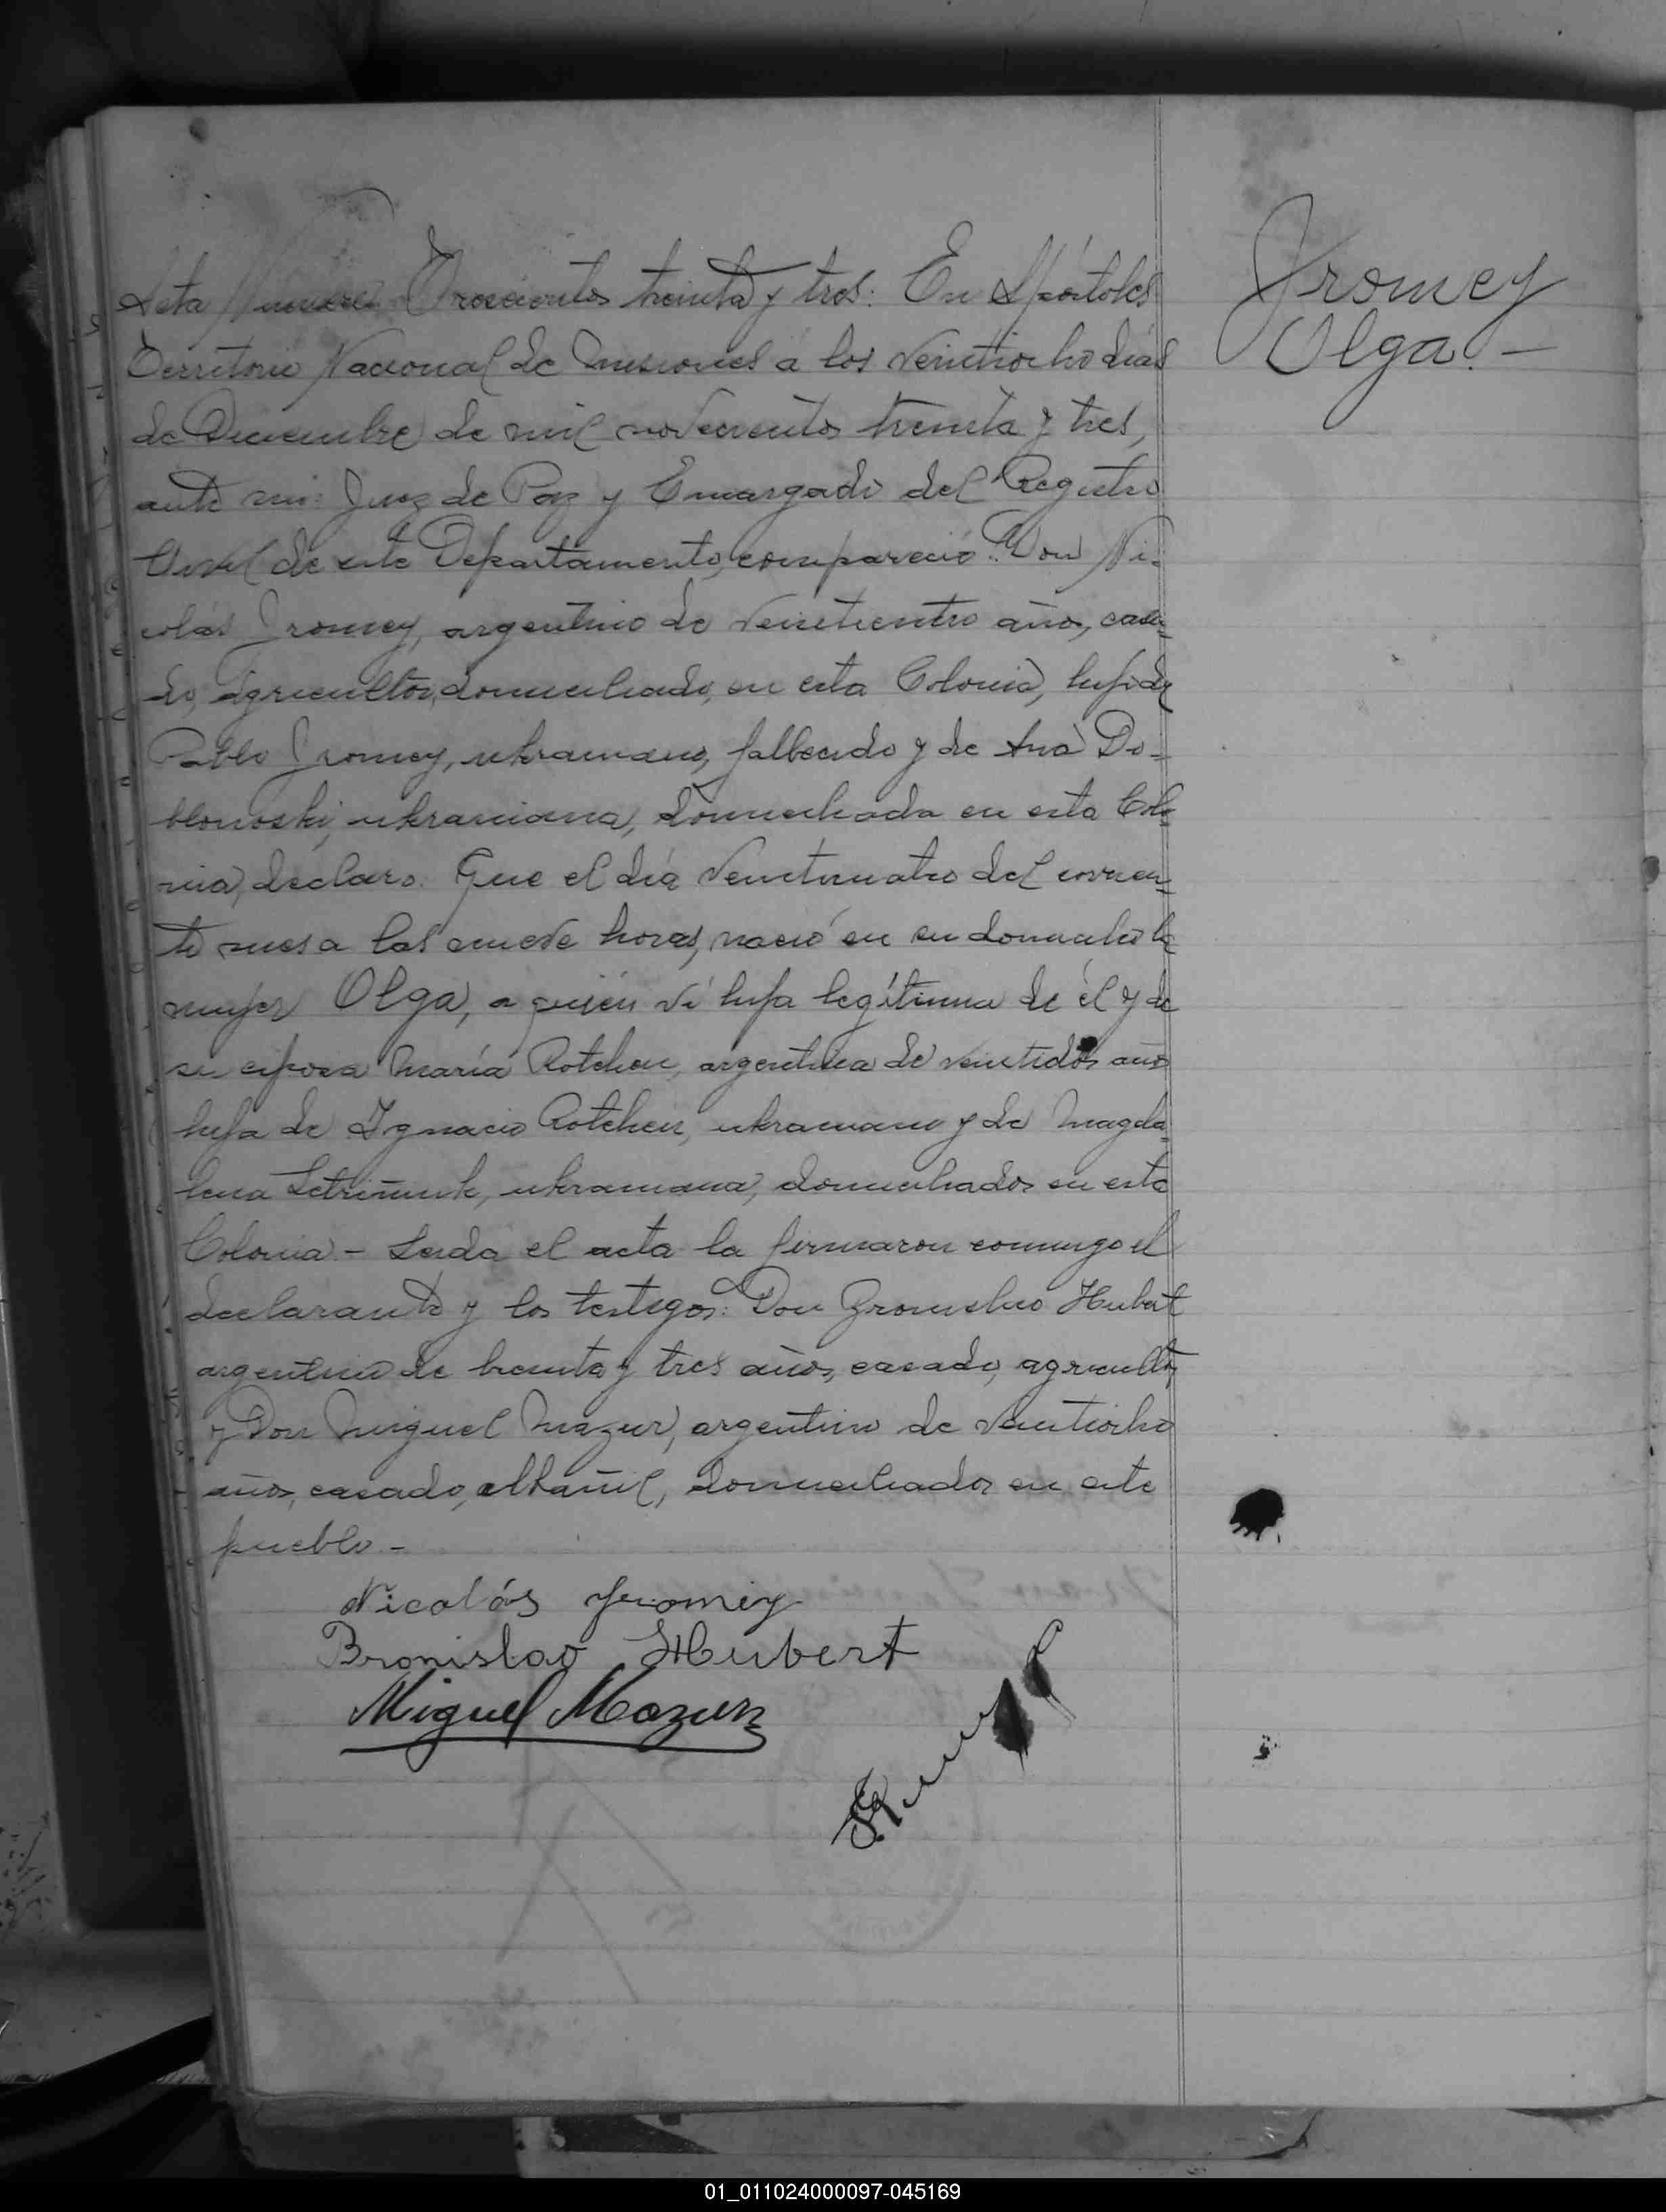 Acta Número Trescientos treinta y tres: En Apóstoles
Territorio Nacional de Misiones a los veintiocho días
de Diciembre de mil novecientos treinta y tres,
ante mi: Juez de Paz y Encargado del Registro
Civil de este Departamento, compareció: Don Ni-
colás Jromey, argentino de veinticuatro años, casa-
do, agricultor, domiciliado, en esta Colonia, hijo de
Pablo Jromey, ukraniano, fallecido y de Ana Do-
blonoski, ukraniana, domiciliada en esta Colo-
nia, declaro: Que el día veinticuatro del corrien-
te mes a las nueve horas, nació en su domicilio la
mujer Olga, a quién vi hija legítima de él y de
su esposa María Rotchen, argentina de veintidós años
hija de Ignacio Rotchen, ukraniano y de Magda-
lena Letriñuk, ukraniana, domiciliados en esta
Colonia - Leida el acta la firmaron conmigo el
declarante y los testigos: Don Bronislao Hubert
argentino de treinta y tres años, casado, agricultor,
y Don Miguel Mazur, argentino de veintiocho
años, casado, albañil, domiciliados en este
pueblo.-
Nicolás Jromey
Bronislao Hubert
Miguel Mazur
Jromey
Olga.-
01_011024000097-045169